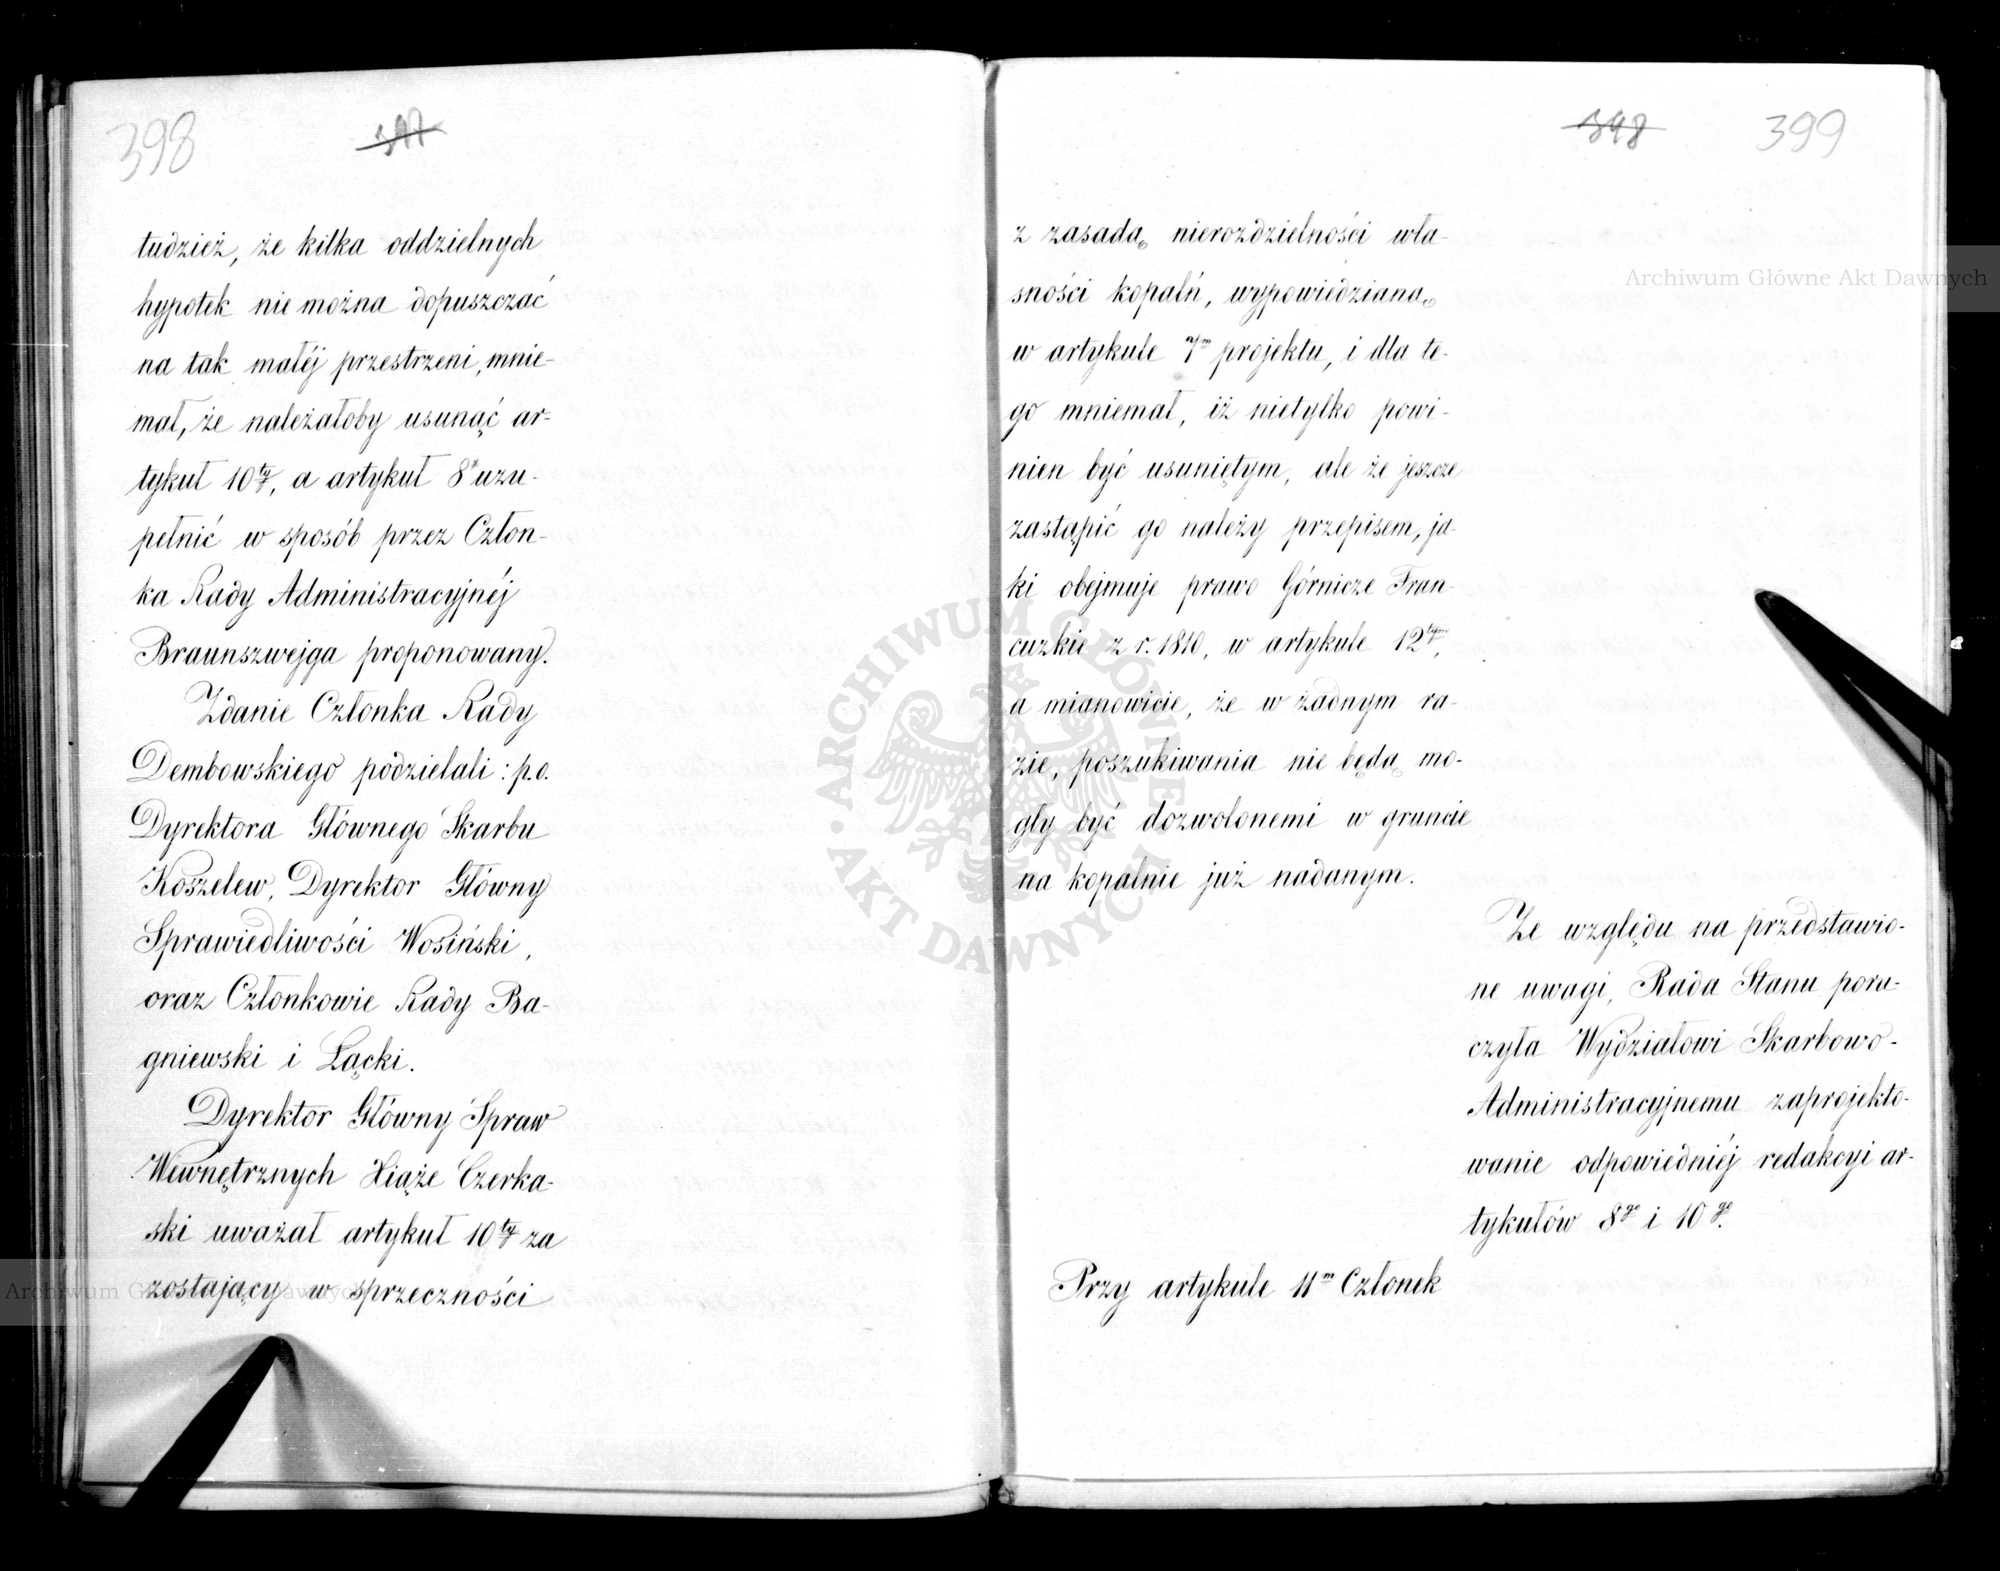 398
397
tudzież, że kilka oddzielnych
hypotek nie można dopuszczać
na tak małéj przestrzeni, mnie-
mał, że należałoby usunąć ar-
tykuł 10ty, a artykuł 8y uzu-
pełnić w sposób przez Człon-
ka Rady Administracyjnéj
Braunszwejga proponowany.
Zdanie Członka Rady
Dembowskiego podzielali: p.o.
Dyrektora Głównego Skarbu
Koszelew, Dyrektor Główny
Sprawiedliwości Wosiński,
oraz Członkowie Rady Ba-
gniewski i Łącki.
Dyrektor Główny Spraw
Wewnętrznych Xiąże Czerka-
ski uważał artykuł 10ty za
zostający w sprzeczności
398
399
z zasadą nierozdzielności wła-
sności kopalń, wypowiedzianą
w artykule 7m projektu, i dla te-
go mniemał, iż nietylko powi-
nien być usuniętym, ale że jeszcze
zastąpić go należy przepisem, ja-
ki obejmuje prawo Górnicze Fran-
cuzkie z r. 1810, w artykule 12tym,
a mianowicie, że w żadnym ra-
zie, poszukiwania nie będą mo-
gły być dozwolonemi w gruncie
na kopalnie już nadanym.
Ze względu na przedstawio-
ne uwagi, Rada Stanu poru-
czyła Wydziałowi Skarbowo-
Administracyjnemu zaprojekto-
wanie odpowiedniéj redakcyi ar-
tykułów 8go i 10go.
Przy artykule 11m Członek
Archiwum Główne Akt Dawnych
Archiwum Główne Akt Dawnych
ARCHIWUM GŁÓWNE
AKT DAWNYCH